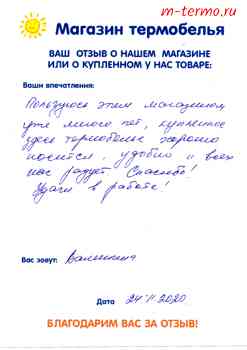 m-termo.ru
Магазин термобелья
ВАШ ОТЗЫВ О НАШЕМ МАГАЗИНЕ
ИЛИ О КУПЛЕННОМ У НАС ТОВАРЕ:
Ваши впечатления:
Пользуюсь этим магазином
уже много лет, купленное
здесь термобелье хорошо
носится, удобно и всех
нас радует. Спасибо!
Удачи в работе!
Вас зовут: Валентина
Дата 24.11.2020
БЛАГОДАРИМ ВАС ЗА ОТЗЫВ!